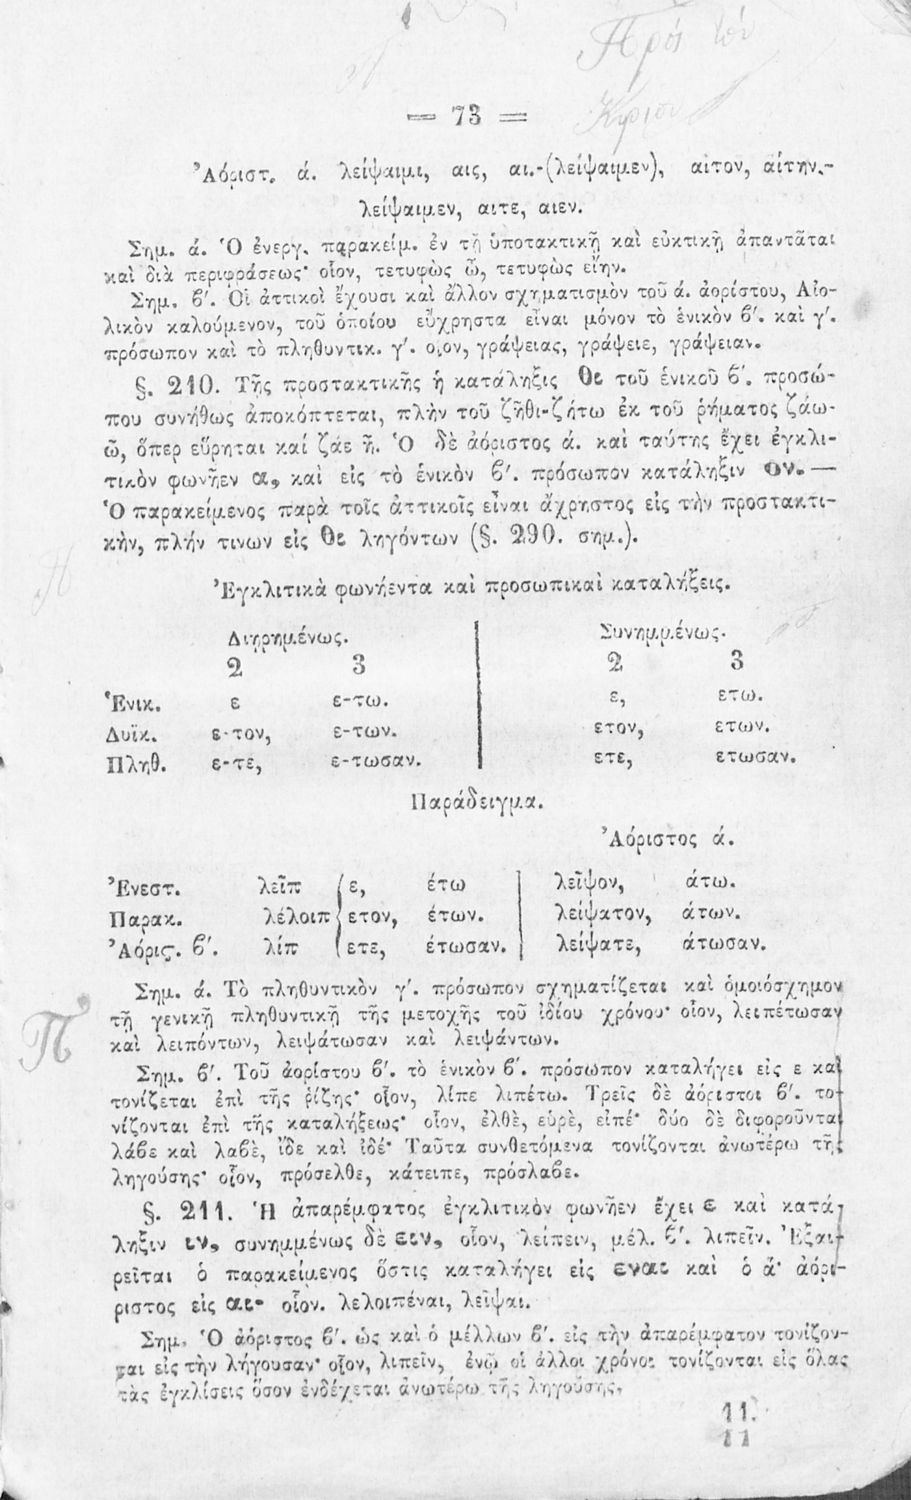 Πρὸς τὸν
Κύριον
= 73 =
Ἀόριστ. ά. λείψαιμι, αις, αι.-(λείψαιμεν), αιτον, αίτην.-
λείψαιμεν, αιτε, αιεν.
Σημ. ά. Ὁ ἐνεργ. παρακείμ. ἐν τῇ ὑποτακτικῇ καὶ εὐκτικῇ ἀπαντᾶται
καὶ διὰ περιφράσεως· οἷον, τετυφὼς ὦ, τετυφὼς εἴην.
Σημ. β'. Οἱ ἀττικοὶ ἔχουσι καὶ ἄλλον σχηματισμὸν τοῦ ά. ἀορίστου, Αἰο-
λικὸν καλούμενον, τοῦ ὁποίου εὔχρηστα εἶναι μόνον τὸ ἑνικὸν β'. καὶ γ'.
πρόσωπον καὶ τὸ πληθυντικ. γ'. οἷον, γράψειας, γράψειε, γράψειαν.
§. 210. Τῆς προστακτικῆς ἡ κατάληξις θι τοῦ ἑνικοῦ β'. προσώ-
που συνήθως ἀποκόπτεται, πλὴν τοῦ ζῆθι-ζήτω ἐκ τοῦ ῥήματος ζάω-
ῶ, ὅπερ εὕρηται καί ζάε ῆ. Ὁ δὲ ἀόριστος ά. καὶ ταύτης ἔχει ἐγκλι-
τικὸν φωνῆεν α, καὶ εἰς τὸ ἑνικὸν β'. πρόσωπον κατάληξιν ον.—
Ὁ παρακείμενος παρὰ τοῖς ἀττικοῖς εἶναι ἄχρηστος εἰς τὴν προστακτι-
κὴν, πλήν τινων εἰς θι ληγόντων (§. 290. σημ.).
Ἐγκλιτικὰ φωνήεντα καὶ προσωπικαὶ καταλήξεις.
Διῃρημένως. Συνημμένως.
2 3 2 3
Ἑνικ. ε ε-τω. ε, ετω.
Δυϊκ. ε-τον, ε-των. ετον, ετων.
Πληθ. ε-τε, ε-τωσαν. ετε, ετωσαν.
Παράδειγμα.
Ἀόριστος ά.
Ἐνεστ. λεῖπ ε, έτω λεῖψον, άτω.
Παρακ. λέλοιπ ετον, έτων. λείψατον, άτων.
Ἀόρις. β'. λίπ ετε, έτωσαν. λείψατε, άτωσαν.
Σημ. ά. Τὸ πληθυντικὸν γ'. πρόσωπον σχηματίζεται καὶ ὁμοιόσχημον
τῇ γενικῇ πληθυντικῇ τῆς μετοχῆς τοῦ ἰδίου χρόνου· οἷον, λειπέτωσαν
καὶ λειπόντων, λειψάτωσαν καὶ λειψάντων.
Π
Σημ. β'. Τοῦ ἀορίστου β'. τὸ ἑνικὸν β'. πρόσωπον καταλήγει εἰς ε καὶ
τονίζεται ἐπὶ τῆς ῥίζης· οἷον, λίπε λιπέτω. Τρεῖς δὲ ἀόριστοι β'. το-
νίζονται ἐπὶ τῆς καταλήξεως· οἷον, ἐλθὲ, εὑρὲ, εἰπέ· δύο δὲ διφοροῦνται
λάβε καὶ λαβὲ, ἴδε καὶ ἰδέ· Ταῦτα συνθετόμενα τονίζονται ἀνωτέρω τῆς
ληγούσης· οἷον, πρόσελθε, κάτειπε, πρόσλαβε.
§. 211. Ἡ ἀπαρέμφατος ἐγκλιτικὸν φωνῆεν ἔχει ε καὶ κατά-
ληξιν ιν, συνημμένως δὲ ειν, οἷον, λείπειν, μέλ. β'. λιπεῖν. Ἐξαι-
ρεῖται ὁ παρακείμενος ὅστις καταλήγει εἰς εναι καὶ ὁ ά· ἀόρι-
ριστος εἰς αι· οἷον. λελοιπέναι, λεῖψαι.
Σημ. Ὁ ἀόριστος β'. ὡς καὶ ὁ μέλλων β'. εἰς τὴν ἀπαρέμφατον τονίζον-
ται εἰς τὴν λήγουσαν· οἷον, λιπεῖν, ἐνῷ οἱ ἄλλοι χρόνοι τονίζονται εἰς ὅλας
τὰς ἐγκλίσεις ὅσον ἐνδέχεται ἀνωτέρω τῆς ληγούσης.
11.
11